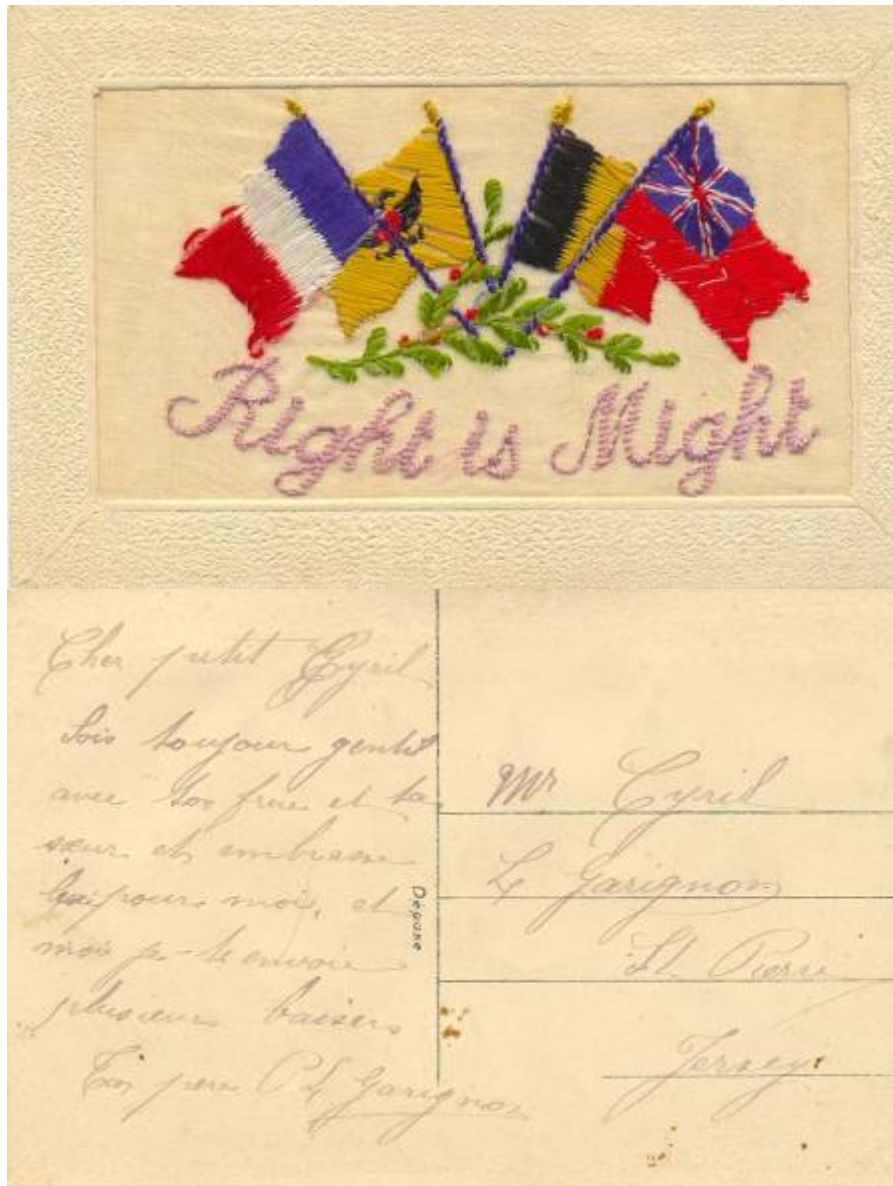 Right is Might
Cher petit Cyril
Sois toujours gentil
avec ton frere et ta
sœur et embrasse
pour moi, et
moi je te envoie
plusieurs baisers
Ton pere P L Garignon
Déposé
Mr Cyril
L Garignon
St. Pierre
Jersey